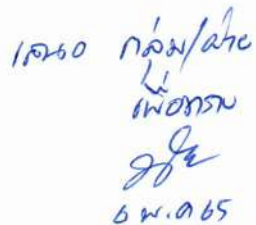 เสนอ กลุ่ม/ฝ่าย
เพื่อทราบ
6 พ.ค 65